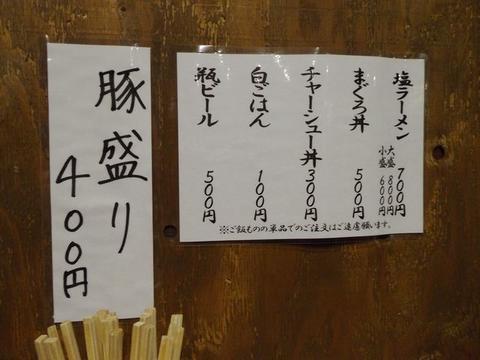 塩ラーメン 700円
大盛 800円
小盛 600円
まぐろ丼 500円
チャーシュー丼 300円
白ごはん 100円
瓶ビール 500円
※ご飯ものの単品でのご注文はご遠慮願います。
豚盛り 400円